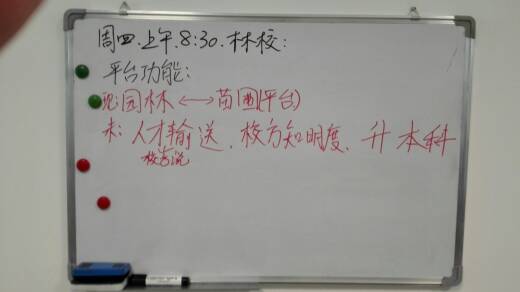 周四.上午.8:30.林校:
平台功能:
现:园林<->苗圃(平台)
未:人才输送.校方知明度.升本科
校方说